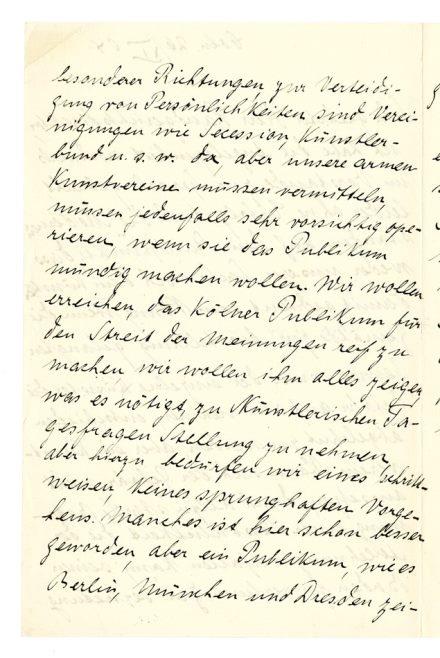 besonderer Richtungen, zur Verteidi-
gung von Persönlichkeiten sind Verei-
nigungen wie Secession, Künstler-
bund u. s. w. da, aber unsere armen
Kunstvereine müssen vermitteln,
müssen jedenfalls sehr vorsichtig ope-
rieren, wenn sie das Publikum
mündig machen wollen. Wir wollen
erreichen, das Kölner Publikum für
den Streit der Meinungen reif zu
machen wir wollen ihm alles zeigen
was es nötigt, zu Künstlerischen Ta-
gesfragen Stellung zu nehmen,
aber hierzu bedürfen wir eines schritt-
weisen keines sprunghaften Vorge-
hens. Manches ist hier schon besser
geworden, aber ein Publikum, wie es
Berlin, München und Dresden zei-